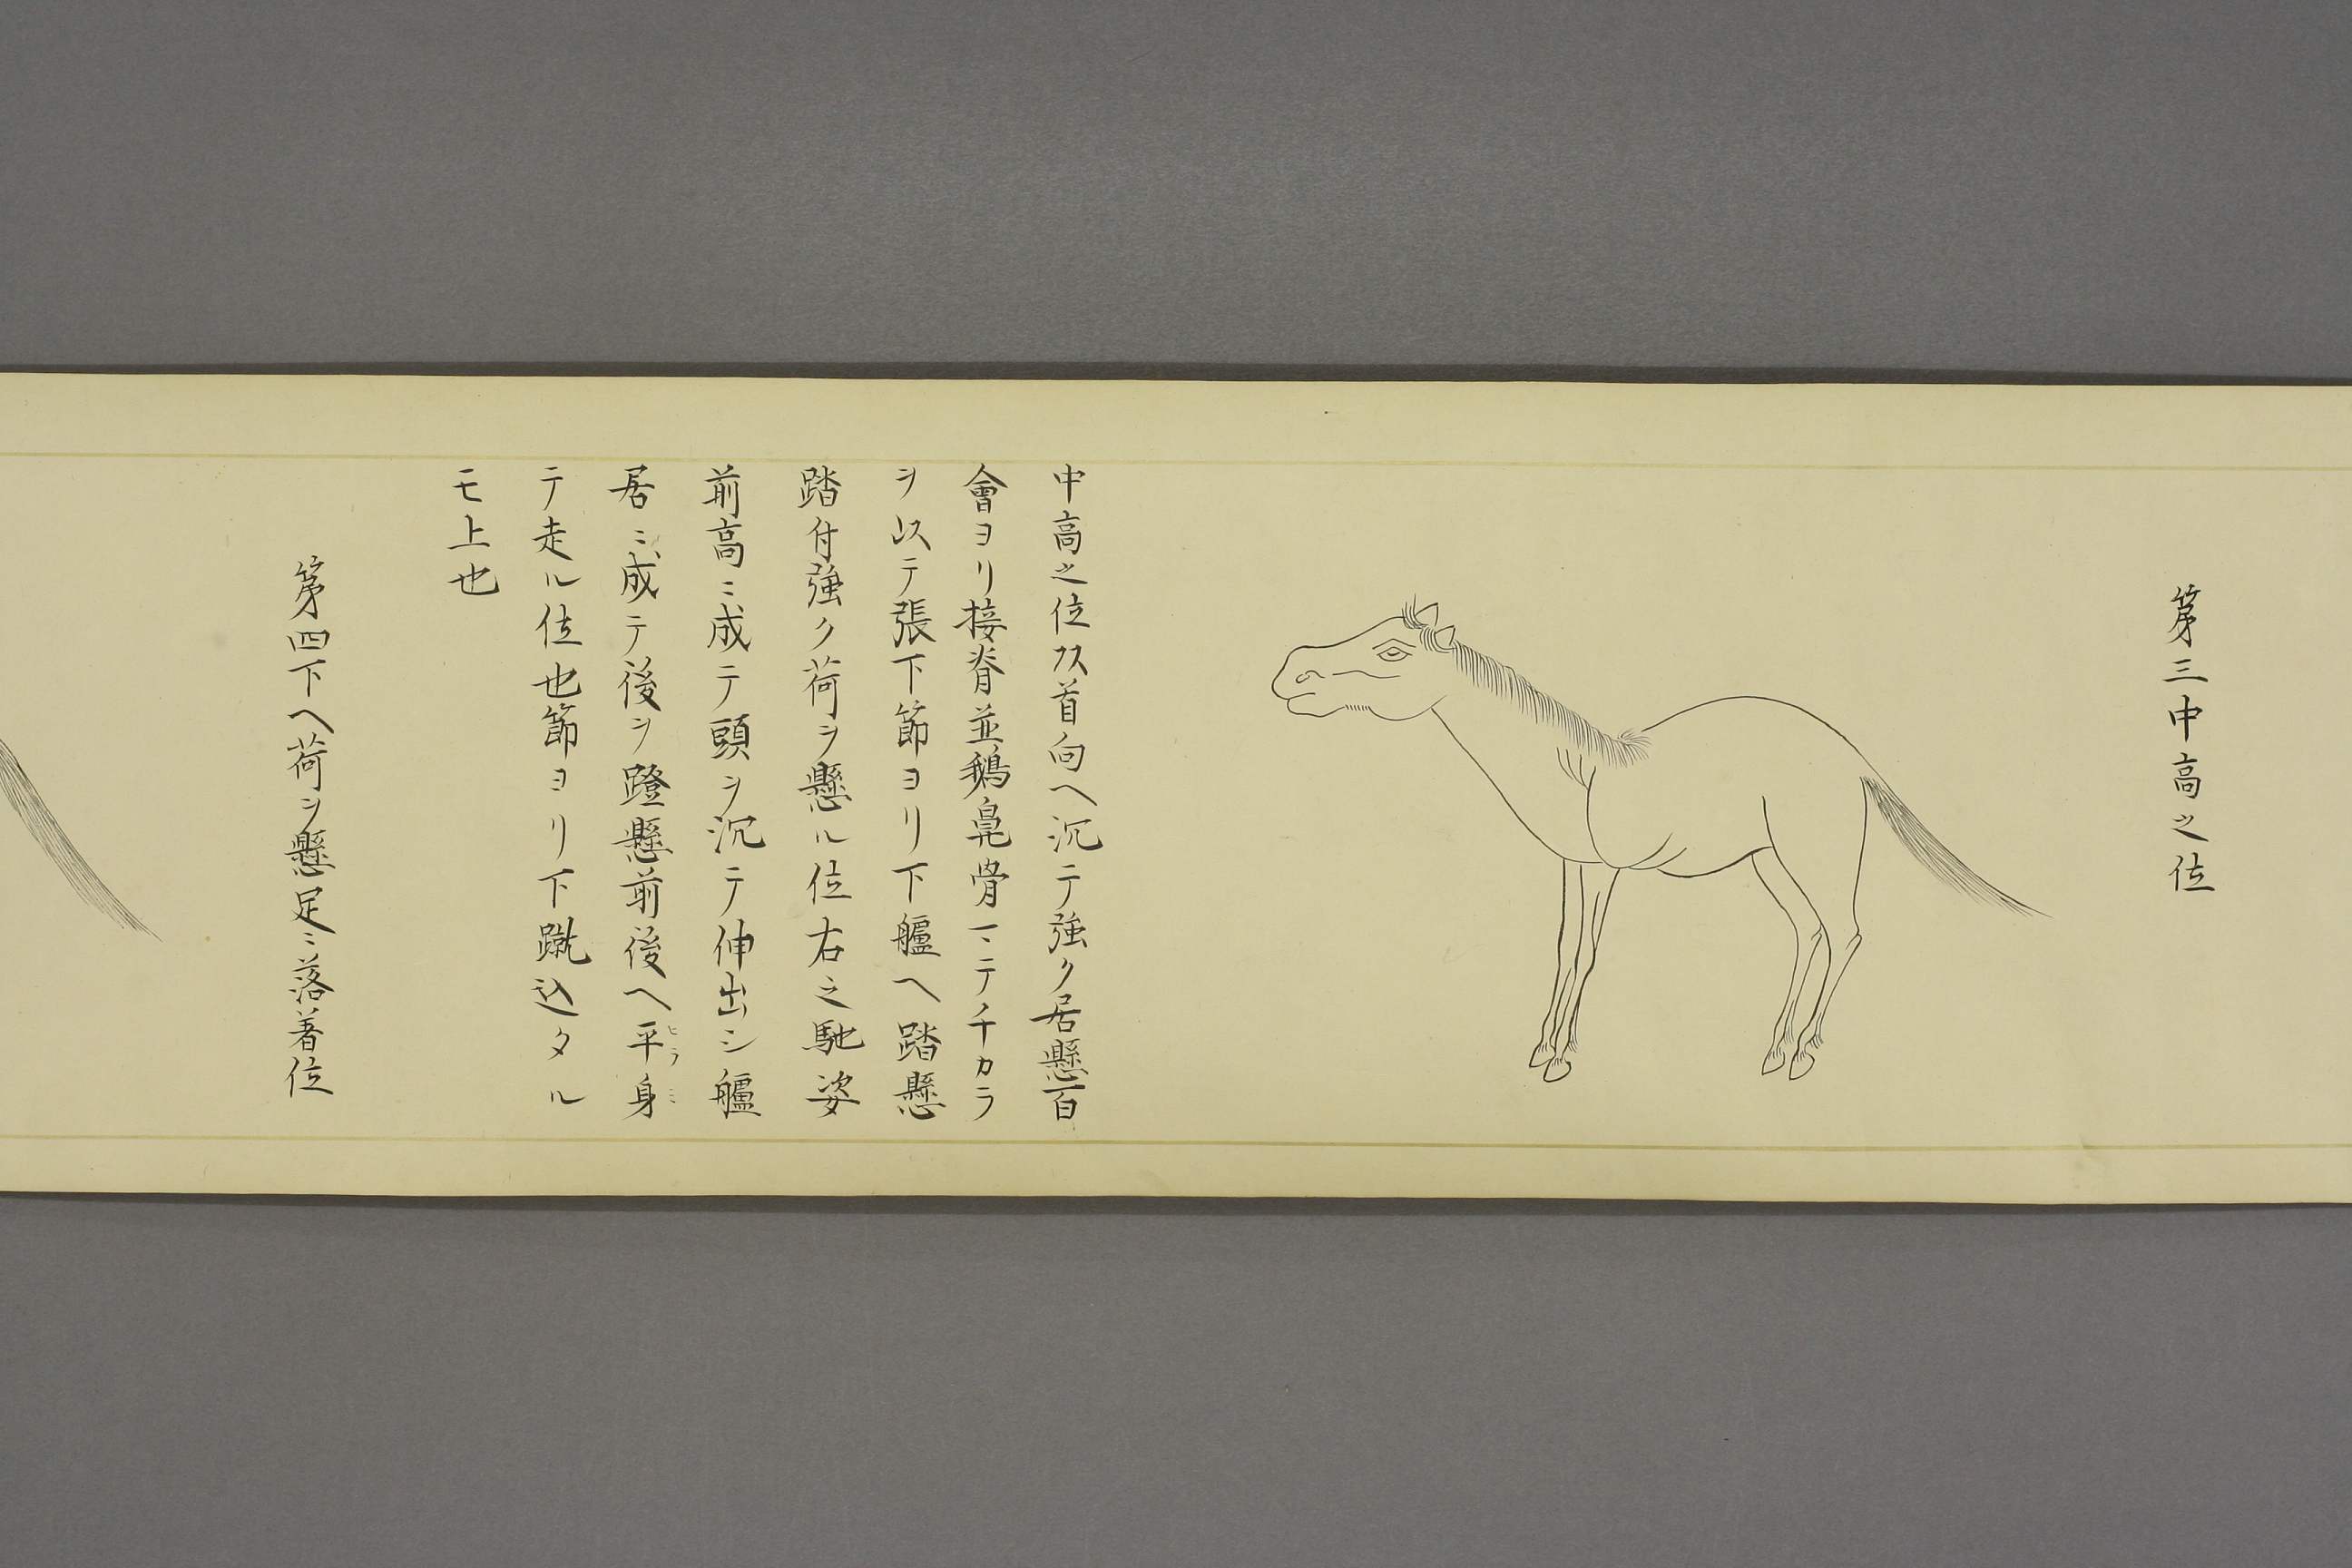 第三中高之位
中高之位ヌス首向ヘ沉テ強ク居懸百
會ヨリ接脊並鵝鼻骨ニテチカラ
ヲ以テ張下節ヨリ下艫ヘ踏懸
踏付強ク荷ヲ懸ル位右之馳姿
前高ニ成テ頭ヲ沉テ伸出シ艫
居ニ成テ後ヲ蹬懸前後ヘ平身
ヒラミ
テ走ル位也節ヨリ下蹴込タル
モ上也
第四下ヘ荷ヲ懸足ニ落着位